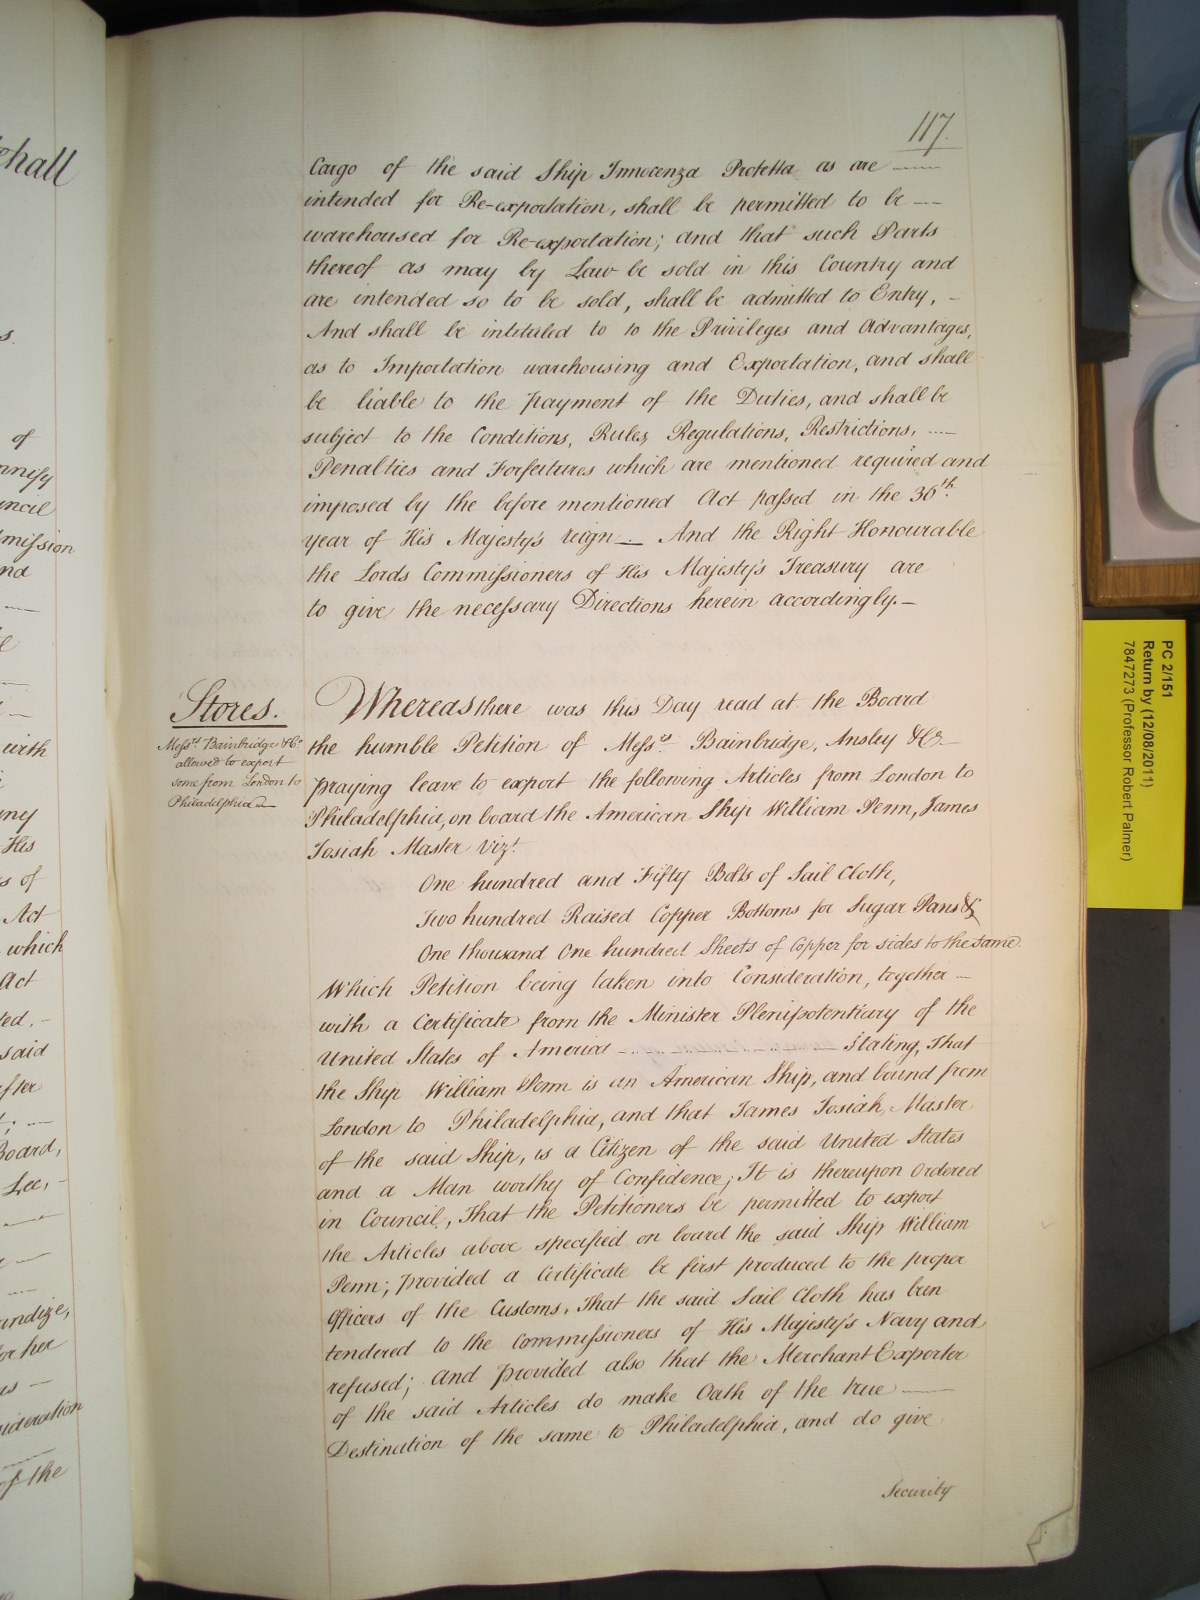 117.
Cargo of the said Ship Innocenza Protetta as are
intended for Re-exportation, shall be permitted to be
warehoused for Re-exportation; and that such Parts
thereof as may by Law be sold in this Country and
are intended so to be sold, shall be admitted to Entry, –
And shall be intituled to to the Privileges and Advantages,
as to Importation warehousing and Exportation, and shall
be liable to the payment of the Duties, and shall be
subject to the Conditions, Rules, Regulations, Restrictions,
Penalties and Forfeitures which are mentioned required and
imposed by the before mentioned Act passed in the 36th.
year of His Majesty's reign — And the Right Honourable
the Lords Commissioners of His Majesty's Treasury are
to give the necessary Directions herein accordingly. –
Stores.
Messrs. Bainbridge &Co.
allowed to export
some from London to
Philadelphia
Whereas there was this Day read at the Board
the humble Petition of Messrs. Bainbridge, Ansley &Co.
praying leave to export the following Articles from London to
Philadelphia, on board the American Ship William Penn, James
Josiah Master Vizt.
One hundred and Fifty Bolts of Sail Cloth,
Two hundred Raised Copper Bottoms for Sugar Pans &
One thousand One hundred Sheets of Copper for sides to the same
Which Petition being taken into Consideration, together –
with a Certificate from the Minister Plenipotentiary of the
United States of America Stating, That
the Ship William Penn is an American Ship, and bound from
London to Philadelphia, and that James Josiah, Master
of the said Ship, is a Citizen of the said United States
and a Man worthy of Confidence; It is thereupon Ordered
in Council, That the Petitioners be permitted to export
the Articles above specified on board the said Ship William
Penn; provided a Certificate be first produced to the proper
Officers of the Customs, That the said Sail Cloth has been
tendered to the Commissioners of His Majesty's Navy and
refused; and provided also that the Merchant Exporter
of the said Articles do make Oath of the true
Destination of the same to Philadelphia, and do give
Security
PC 2/151
Return by (12/08/2011)
7847273 (Professor Robert Palmer)